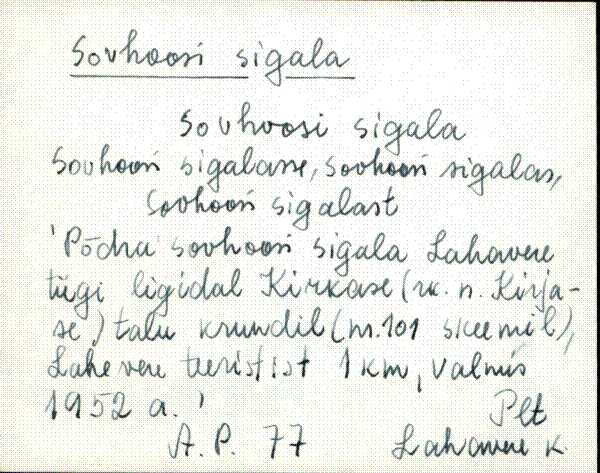 Sovhoosi sigala
Sovhoosi sigala
Sovhoosi sigalasse, sovhoosi sigalas,
Sovhoosi sigalast
'Põdra sovhoosi sigala Lahavere
tiigi ligidal Kirkase (rk. n. Kirja-
se) talu krundil (nr. 101 skeemil),
Lahevere teeristist 1 km, valmis
1952 a.'
Plt
A. P. 77 Lahavere k.